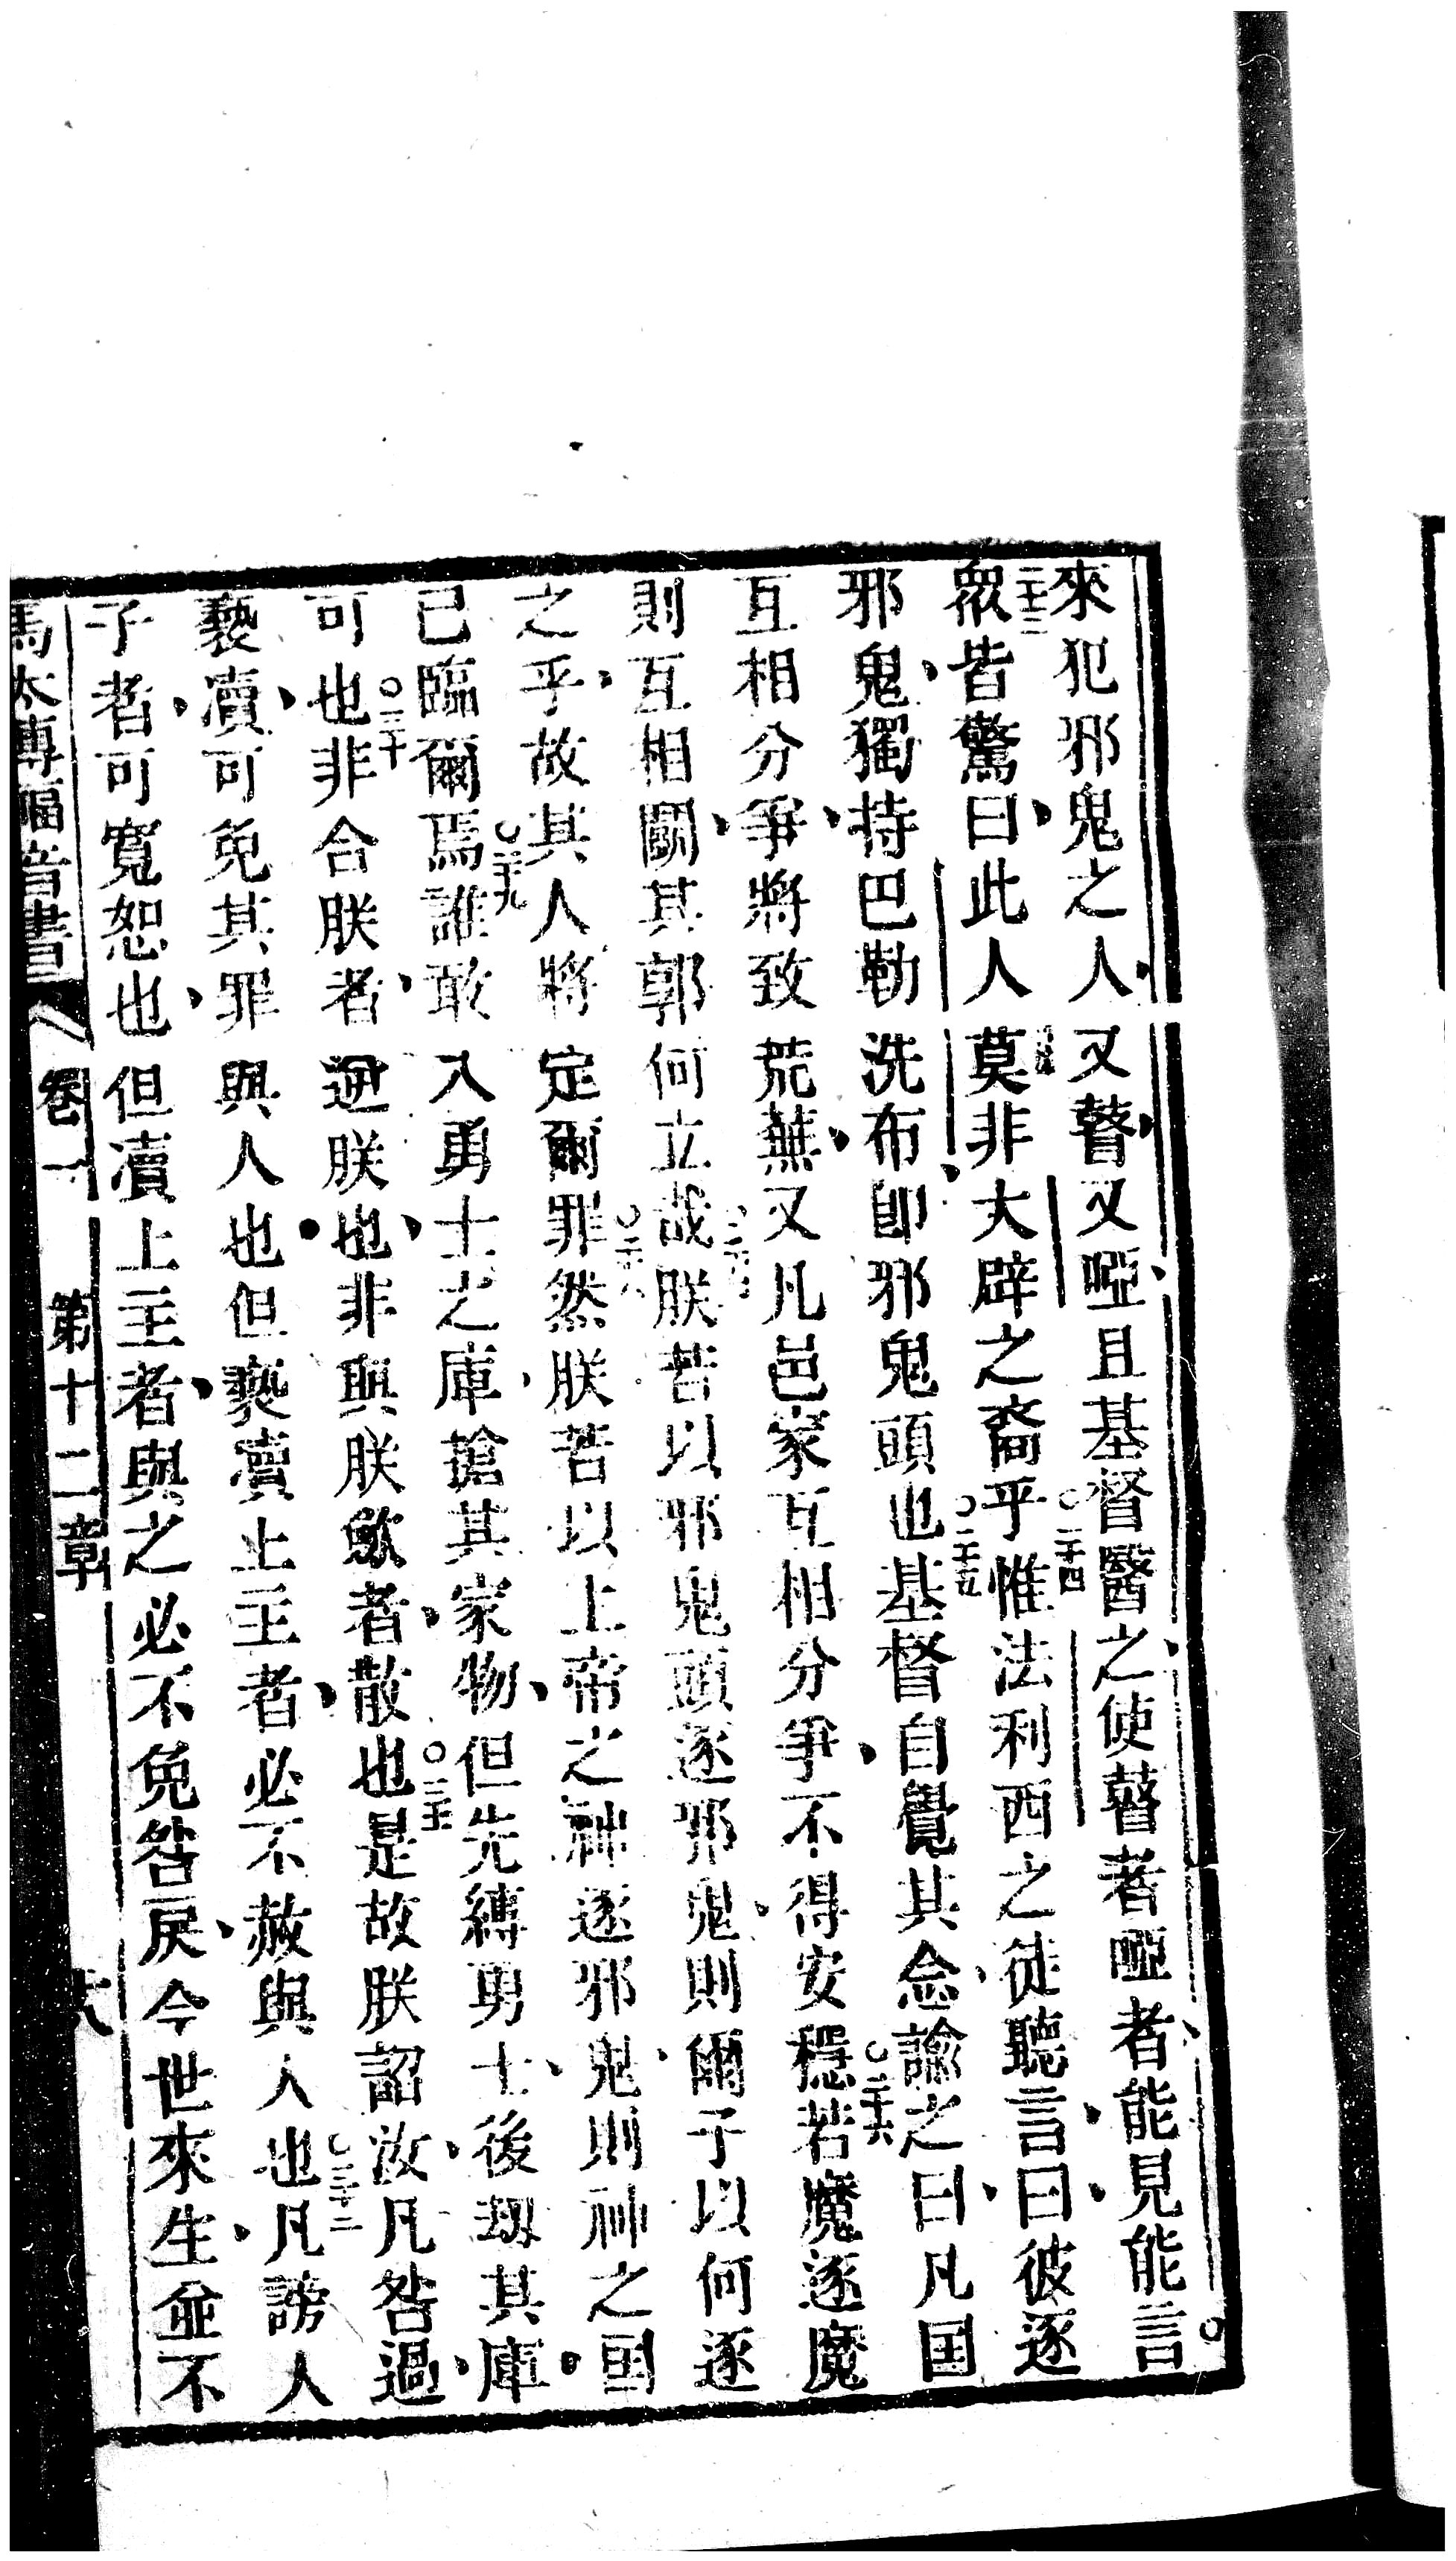 來犯邪鬼之人、又瞽、又啞、且基督醫之、使瞽者啞者、能見能言。
二十三眾皆驚曰、此人莫非大辟之裔乎○二十四惟法利西之徒聽言、曰、彼逐
邪鬼、獨持巴勒洗布、即邪鬼頭也○二十五基督自覺其念、諭之曰、凡囯
互相分爭、將致荒蕪、又凡邑家互相分爭、不得安穩○二十六若魔逐魔
則互相鬬、其郭何立哉○二十七朕若以邪鬼頭逐邪鬼、則爾子以何逐
之乎、故其人將定爾罪○二十八然朕若以上帝之神逐邪鬼、則神之囯
已臨爾焉○二十九誰敢入勇士之庫、搶其家物、但先縛勇士、後刼其庫、
可也○三十非合朕者、逆朕也、非與朕歛者、散也○三十一是故朕詔汝、凡咎過、
褻瀆、可免其罪與人也、但褻瀆上主者、必不赦與人也○三十二凡謗人
子者、可寬恕也、但瀆上主者、與之必不免咎戾、今世來生、並不
馬太傳福音書 卷一 第十二章